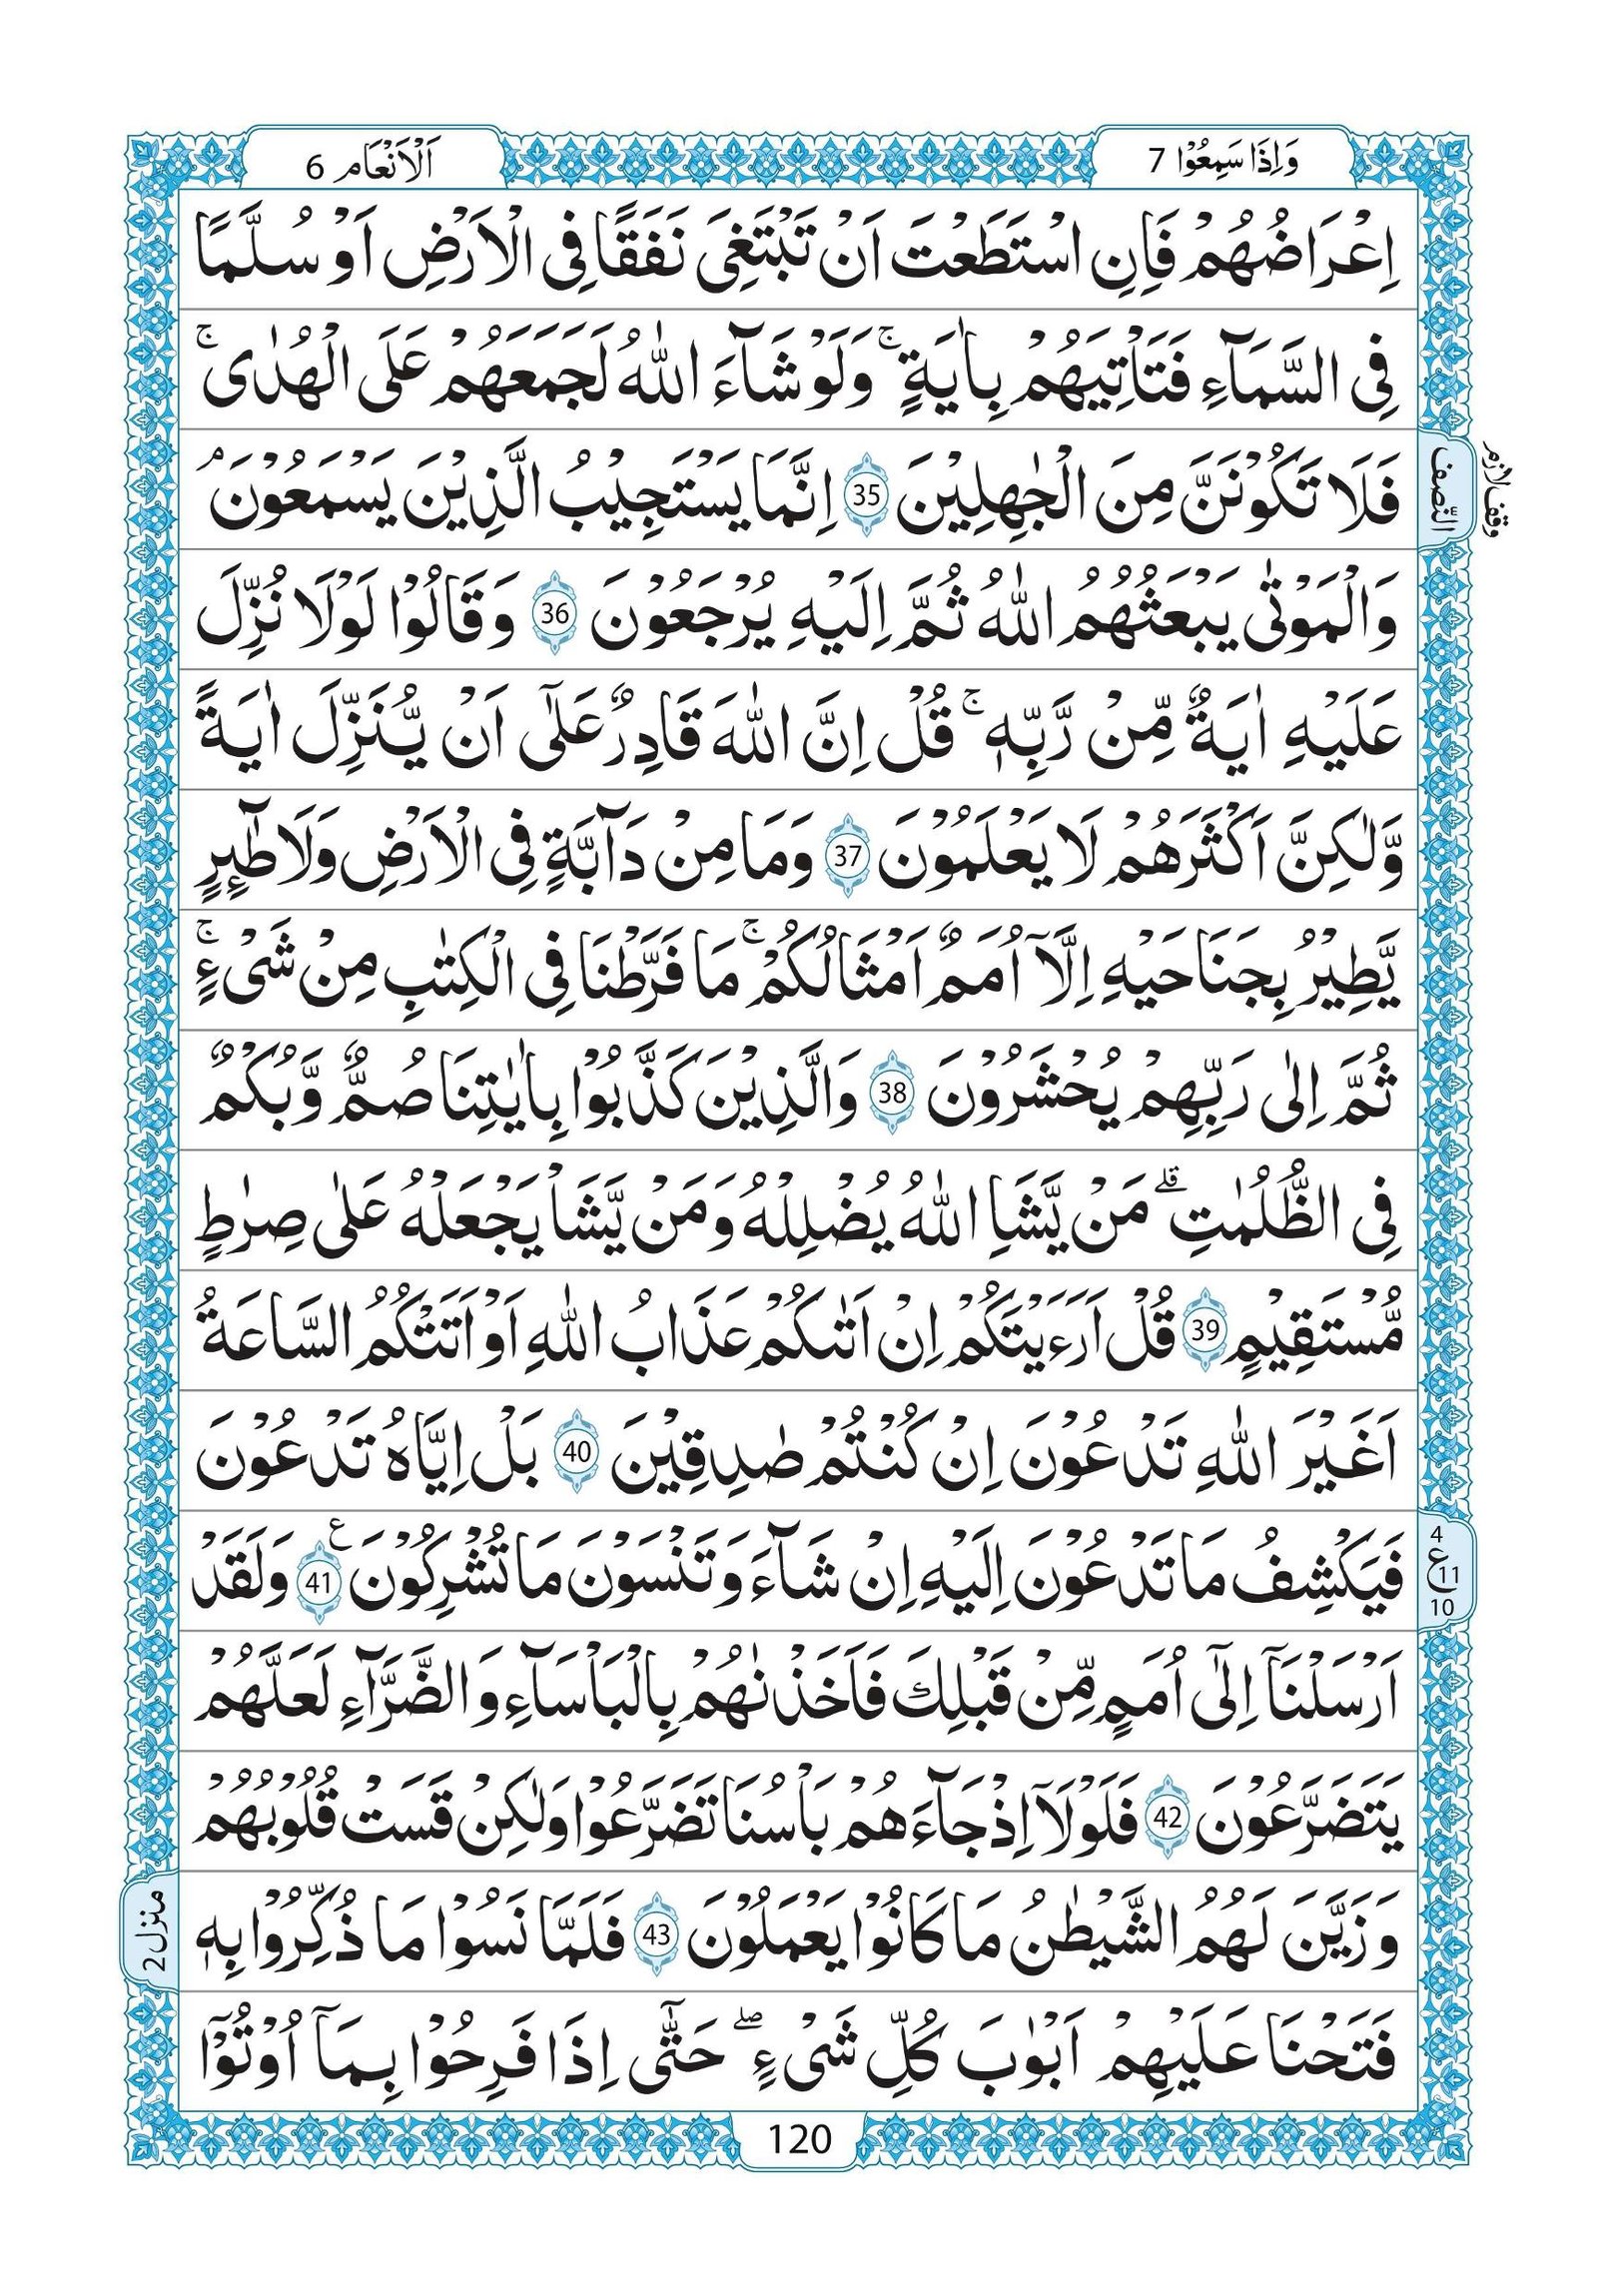 وَاِذَا سَمِعُوْا 7
اَلْاَنْعَام 6
اِعْرَاضُهُمْ فَاِنِ اسْتَطَعْتَ اَنْ تَبْتَغِیَ نَفَقًا فِی الْاَرْضِ اَوْ سُلَّمًا
فِی السَّمَآءِ فَتَاْتِیَهُمْ بِاٰیَةٍ ۚ وَلَوْ شَآءَ اللّٰهُ لَجَمَعَهُمْ عَلَی الْهُدٰی ۚ
فَلَا تَكُوْنَنَّ مِنَ الْجٰهِلِیْنَ 35 اِنَّمَا یَسْتَجِیْبُ الَّذِیْنَ یَسْمَعُوْنَ ۘ
النِّصف
وقف لازم
وَالْمَوْتٰی یَبْعَثُهُمُ اللّٰهُ ثُمَّ اِلَیْهِ یُرْجَعُوْنَ 36 وَقَالُوْا لَوْلَا نُزِّلَ
عَلَیْهِ اٰیَةٌ مِّنْ رَّبِّهٖ ۚ قُلْ اِنَّ اللّٰهَ قَادِرٌ عَلٰۤی اَنْ یُّنَزِّلَ اٰیَةً
وَّلٰكِنَّ اَكْثَرَهُمْ لَا یَعْلَمُوْنَ 37 وَمَا مِنْ دَآبَّةٍ فِی الْاَرْضِ وَلَا طٰٓىِٕرٍ
یَّطِیْرُ بِجَنَاحَیْهِ اِلَّاۤ اُمَمٌ اَمْثَالُكُمْ ۚ مَا فَرَّطْنَا فِی الْكِتٰبِ مِنْ شَیْءٍ ۚ
ثُمَّ اِلٰی رَبِّهِمْ یُحْشَرُوْنَ 38 وَالَّذِیْنَ كَذَّبُوْا بِاٰیٰتِنَا صُمٌّ وَّبُكْمٌ
فِی الظُّلُمٰتِ ۗ مَنْ یَّشَاِ اللّٰهُ یُضْلِلْهُ وَمَنْ یَّشَاْ یَجْعَلْهُ عَلٰی صِرٰطٍ
مُّسْتَقِیْمٍ 39 قُلْ اَرَءَیْتَكُمْ اِنْ اَتٰىكُمْ عَذَابُ اللّٰهِ اَوْ اَتَتْكُمُ السَّاعَةُ
اَغَیْرَ اللّٰهِ تَدْعُوْنَ اِنْ كُنْتُمْ صٰدِقِیْنَ 40 بَلْ اِیَّاهُ تَدْعُوْنَ
فَیَكْشِفُ مَا تَدْعُوْنَ اِلَیْهِ اِنْ شَآءَ وَتَنْسَوْنَ مَا تُشْرِكُوْنَ ع 41 وَلَقَدْ
4
ع 11
10
اَرْسَلْنَاۤ اِلٰۤی اُمَمٍ مِّنْ قَبْلِكَ فَاَخَذْنٰهُمْ بِالْبَاْسَآءِ وَالضَّرَّآءِ لَعَلَّهُمْ
یَتَضَرَّعُوْنَ 42 فَلَوْلَاۤ اِذْ جَآءَهُمْ بَاْسُنَا تَضَرَّعُوْا وَلٰكِنْ قَسَتْ قُلُوْبُهُمْ
وَزَیَّنَ لَهُمُ الشَّیْطٰنُ مَا كَانُوْا یَعْمَلُوْنَ 43 فَلَمَّا نَسُوْا مَا ذُكِّرُوْا بِهٖ
منزل 2
فَتَحْنَا عَلَیْهِمْ اَبْوٰبَ كُلِّ شَیْءٍ ۖ حَتّٰۤی اِذَا فَرِحُوْا بِمَاۤ اُوْتُوْۤا
120